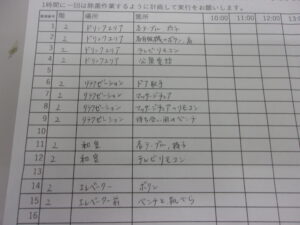 1時間に一回は除菌作業するように計画して実行をお願いします。
階 場所 箇所 10:00 11:00 12:00 13:00
1 2 ドリンクエリア 各テーブル
2 2 ドリンクエリア ボタン
3 2 ドリンクエリア テレビリモコン
4 2 ドリンクエリア 公衆電話
5
6 2 リラクゼーション ドア取手
7 2 リラクゼーション マッサージチェア
8 2 リラクゼーション マッサージチェアのリモコン
9 2 リラクゼーション ベンチ
10
11 2 和室 各テーブル、椅子
12 2 和室 テレビリモコン
13
14 2 エレベーター ボタン
15 2 エレベーター前 ベンチと
16